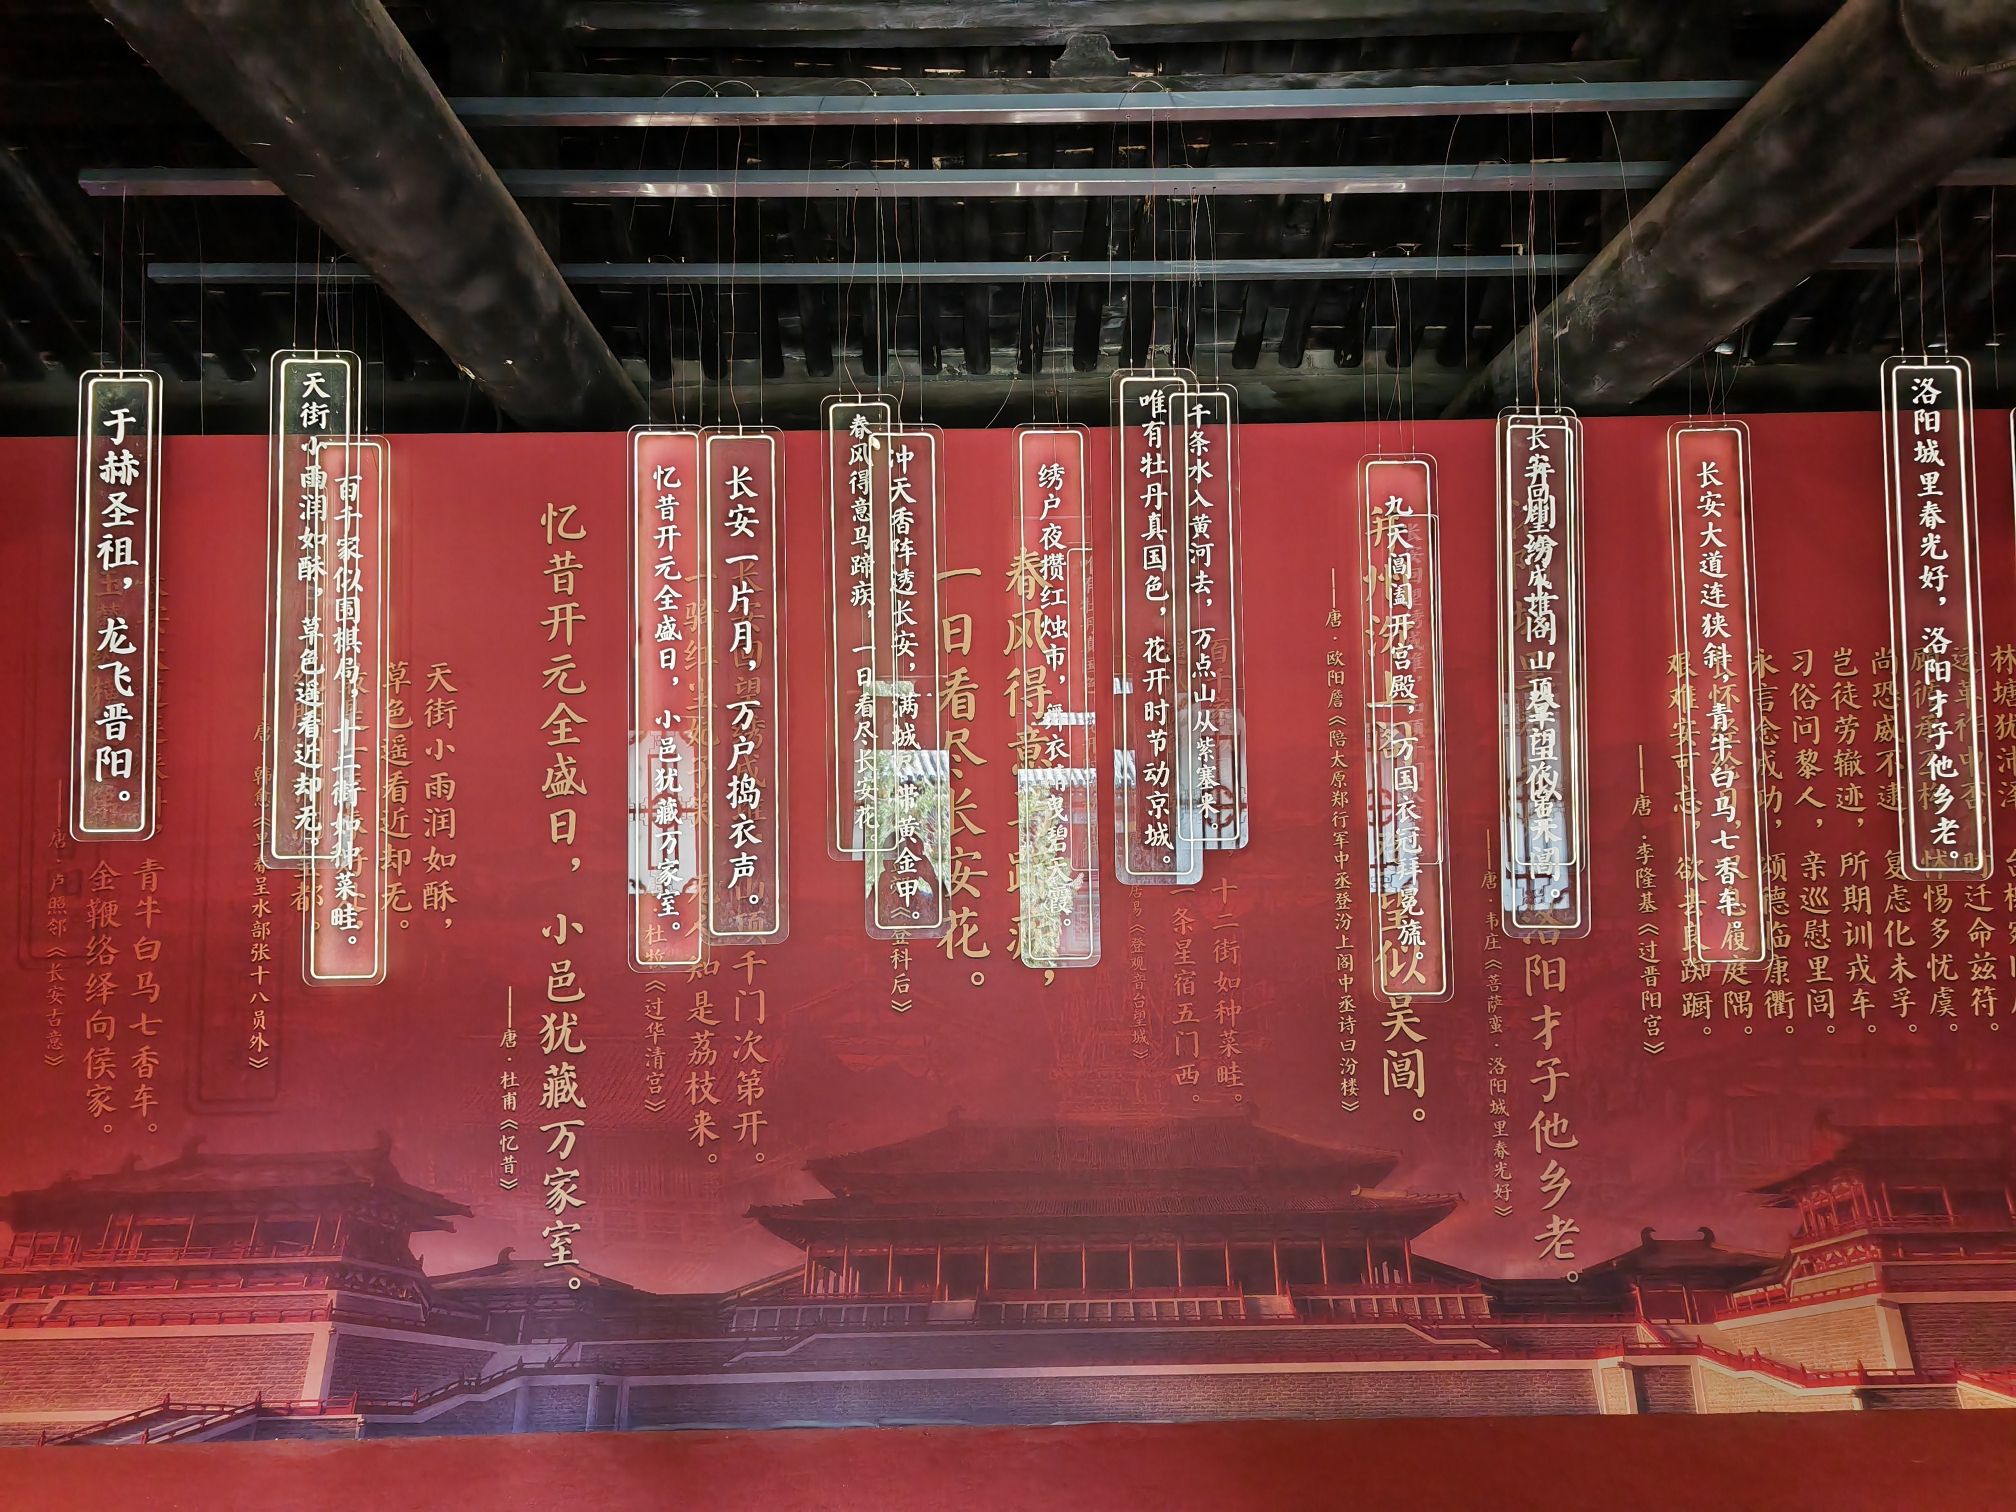 于赫圣祖，龙飞晋阳。
天街小雨润如酥，草色遥看近却无。
百千家似围棋局，十二街如种菜畦。
忆昔开元全盛日，小邑犹藏万家室。
长安一片月，万户捣衣声。
春风得意马蹄疾，一日看尽长安花。
冲天香阵透长安，满城尽带黄金甲。
绣户夜攒红烛市，舞衣晴曳碧天霞。
唯有牡丹真国色，花开时节动京城。
千条水入黄河去，万点山从紫塞来。
九天阊阖开宫殿，万国衣冠拜冕旒。
长安大道连狭斜，青牛白马七香车。
洛阳城里春光好，洛阳才子他乡老。
青牛白马七香车。
金鞭络绎向侯家。
——唐·卢照邻《长安古意》
天街小雨润如酥，
草色遥看近却无。
唐·韩愈《早春呈水部张十八员外》
忆昔开元全盛日，小邑犹藏万家室。
——唐·杜甫《忆昔》
山顶千门次第开。
一骑红尘妃子笑，无人知是荔枝来。
杜牧《过华清宫》
春风得意马蹄疾，
一日看尽长安花。
《登科后》
十二街如种菜畦。
一条星宿五门西。
居易《登观音台望城》
并州汾上阁，望似吴阊。
——唐·欧阳詹《陪太原郑行军中丞登汾上阁中丞诗曰汾楼》
洛阳才子他乡老。
——唐·韦庄《菩萨蛮·洛阳城里春光好》
习俗问黎人，亲巡慰里闾。
永言念成功，颂德临康衢。
岂徒劳辙迹，所期训戎车。
尚恐威不逮，复虑化未孚。
艰难安可忘，欲去良踟蹰。
——唐·李隆基《过晋阳宫》